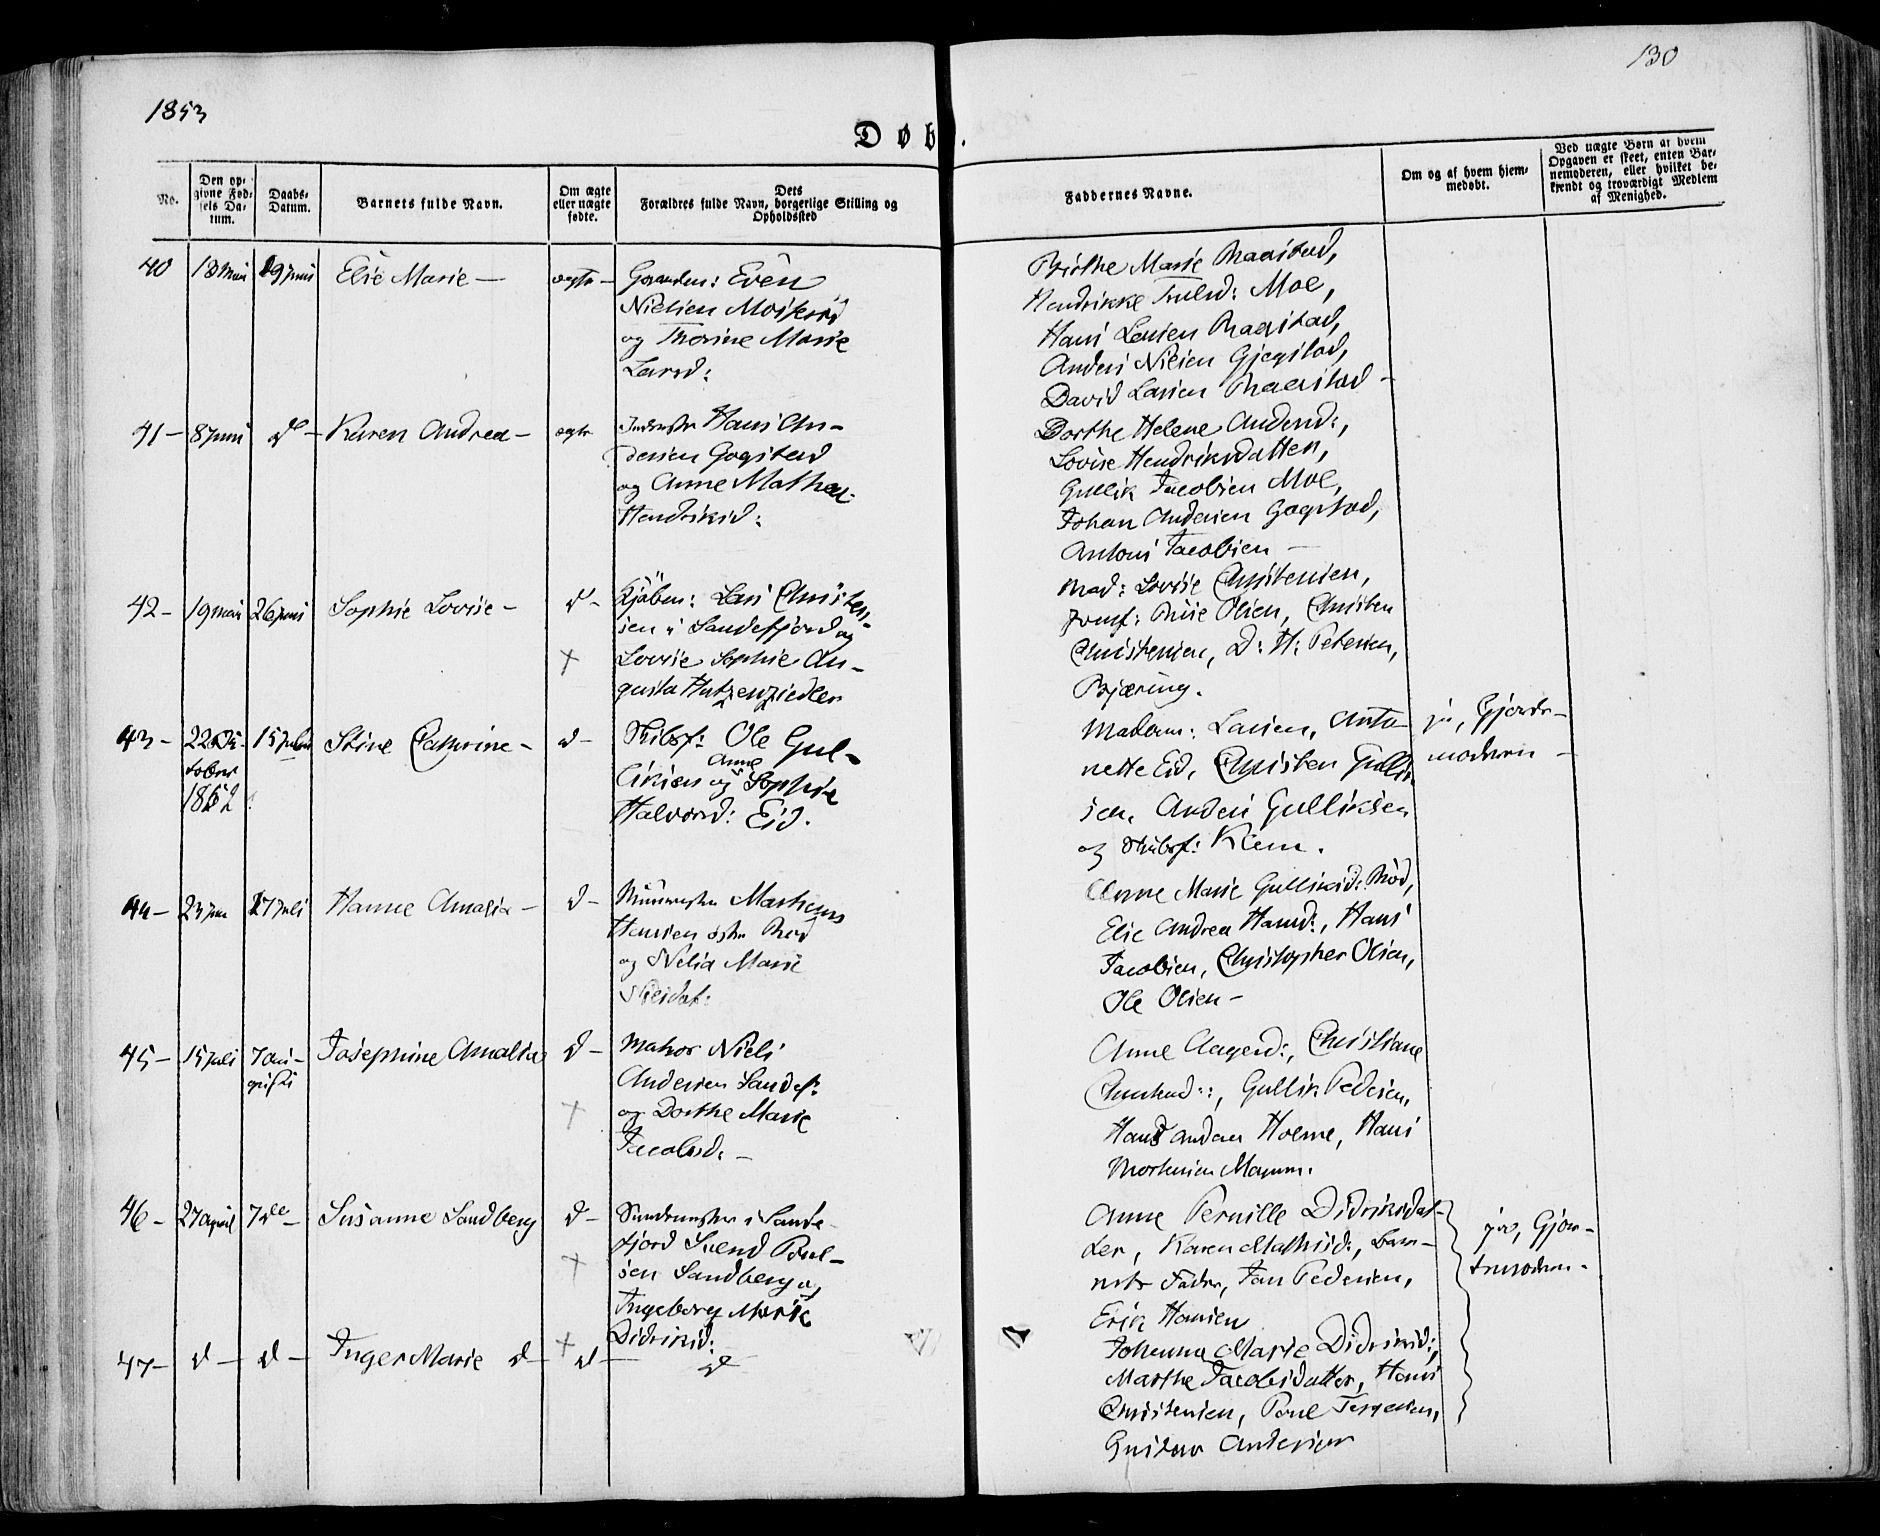 1853
130
Døbt.
No.
Den op-
givne Fød-
sels Da-
tum.
Daabs-
Datum.
Barnets fulde Navn.
Om ægte
eller uægte
fødte.
Dets
Forældres fulde Navn, borgerlige Stilling og
Opholdssted
Faddernes Navne.
Om og af hvem hjem-
medøbt.
Ved uægte Børn af hvem
Opgaven er skeet, enten Bar-
nemoderen, eller hvilket be-
kjendt og troværdigt Medlem
af Menighed.
40 18 Mai 19 juni Elise Marie — ægte —
Gaardm: Even
Nielsen
og Thorine Marie
Larsd:
Birthe Marie
Hendrikke Moe,
Hans Larsen
Anders Nilsen Gjegstad,
David Larsen
41 — 8 juni do — Karen Andrea — ægte
Hans An-
dersen Gogstad
og Anne Mathea
Hendriksd:
Dorthe Helene Andersd:,
Lovise Hendriksdatter,
Gullik Jacobsen Moe,
Johan Andersen Gogstad,
Antoni Jacobsen —
42 — 19 mai 26 juni Sophie Lovise — d —
Kjøbm: Lars Christen-
sen i Sandefjord og
Lovise Sophie Au-
gusta Hutzenziedler
Mad: Lovise Christensen,
Jomf: Olsen, Christen
Christensen, D: H: Petersen,
Bjæring.
43 — 22 Ok- 15 Juli Stine Cathrine — d —
tober
1852
Skibsf: Ole Gul-
Anne
liksen og Sophie
Halvorsd: Eid.
Madam: Larsen, Anto-
nette Eid, Christen Gullik
sen, Anders Gulliksen
og Skibsf: Klem.
ja, Gjorde-
moderen —
44 — 23 juni 17 juli Hanne Amalia — d —
Mathias
Hansen østre Rød
og Nelia Marie
Nilsdat:
Anne Marie Gulliksd: Rød,
Elie Andrea Hansd:, Hans
Jacobsen, Christopher Olsen,
Ole Olsen —
45 — 15 juli 7 au- Josephine Amalia d —
gusti
Matros Niels
Andersen Sandef:
og Dorthe Marie
Jacobsd: —
Anne Aagesd:, Christiane
Gullik Pedersen,
Holme, Hans
Mortensen
46 — 27 april 7de — Susanne Sandberg d —
i Sande-
fjord Svend Poul-
sen Sandberg og
Ingeborg Marie
Didriksd:
Anne Pernille Didriksdat-
ter, Karen Mathisd:, Bar-
nets Fader, Jan Pedersen,
Erik Hansen
ja, Gjor-
demoderen —
47 — d — d — Inger Marie d — d — d
Johanna Marie Didriksd:,
Marthe Jacobsdatter, Hans
Christensen, Poul Torgersen,
Gustav Andersen